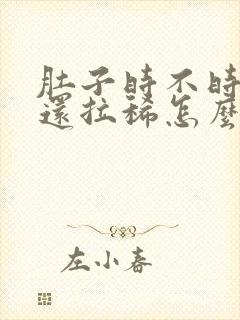 肚子時不時
還拉稀怎麼
左小春